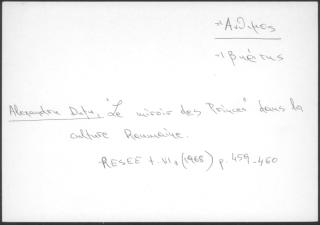 Άνθιμος
Ιβηρίτης
Alexandru Duțu, "Le miroir des Princes" dans la
culture Roumaine.
RESEE t. VI, (1968) p. 459-460